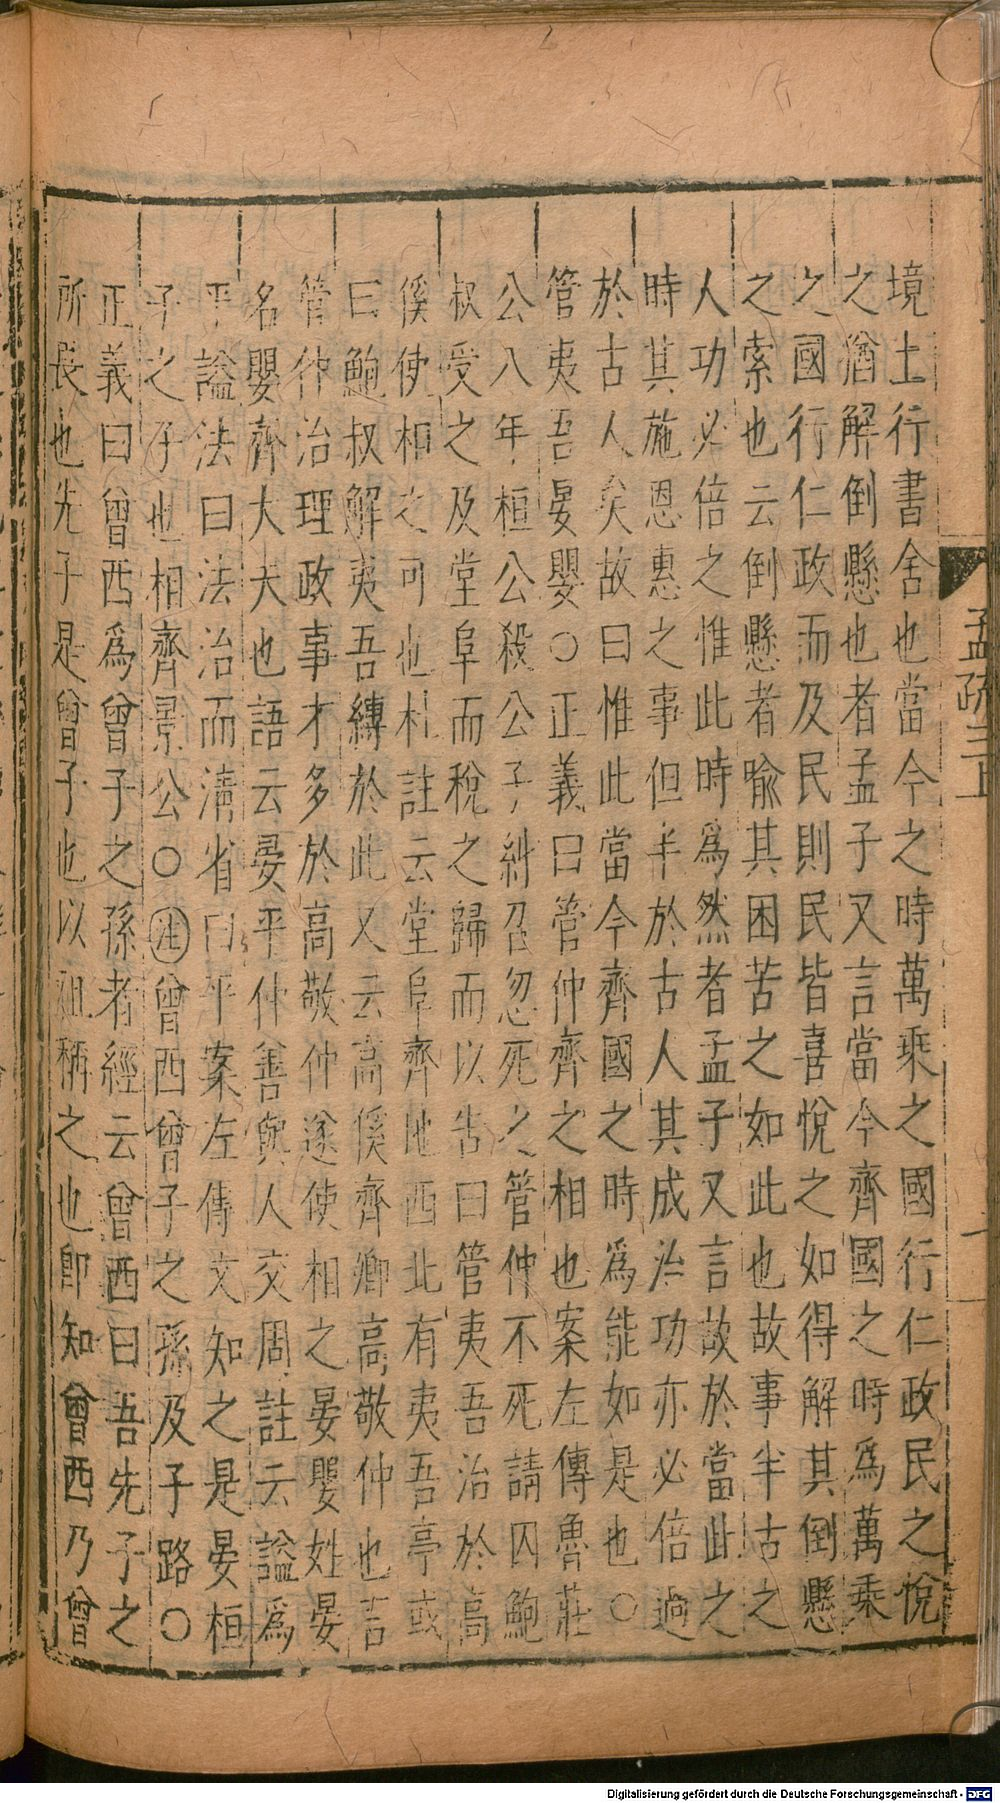 境土行書舍也當今之時萬乘之國行仁政民之悅
之猶解倒懸也者孟子又言當今齊國之時爲萬乘
之國行仁政而及民則民皆喜悅之如得解其倒懸
之索也云倒懸者喩其困苦之如此也故事半古之
人功必倍之惟此時爲然者孟子又言故於當此之
時其施恩惠之事但半於古人其成治功亦必倍過
於古人矣故曰惟此當今齊國之時爲能如是也○
管夷吾晏嬰○正義曰管仲齊之相也案左傳魯莊
公八年桓公殺公子糾召忽死之管仲不死請囚鮑
叔受之及堂阜而稅之歸而以告曰管夷吾治於高
傒使相之可也杜註云堂阜齊地西北有夷吾亭或
曰鮑叔解夷吾縛於此又云高傒齊卿高敬仲也言
管仲治理政事才多於高敬仲遂使相之晏嬰姓晏
名嬰齊大夫也語云晏平仲善與人交周註云謚爲
平謚法曰法治而淸省曰平案左傳文知之是晏桓
子之子也相齊景公○注曾西曾子之孫及子路○
正義曰曾西爲曾子之孫者經云曾西曰吾先子之
所長也先子是曾子也以祖稱之也卽知曾西乃曾
孟疏三上
Digitalisierung gefördert durch die Deutsche Forschungsgemeinschaft - DFG